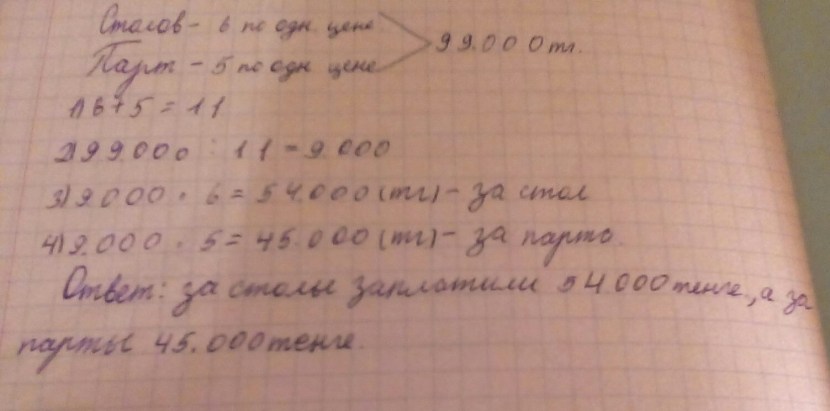 Столов - 6 по одн. цене
99.000 тг.
Парт - 5 по одн цене
1) 6 + 5 = 11
2) 99.000 : 11 = 9.000
3) 9.000 · 6 = 54.000 (тг) - за стол
4) 9.000 · 5 = 45.000 (тг) - за парты.
Ответ: за столы заплатили 54.000 тенге, а за
парты 45.000 тенге.